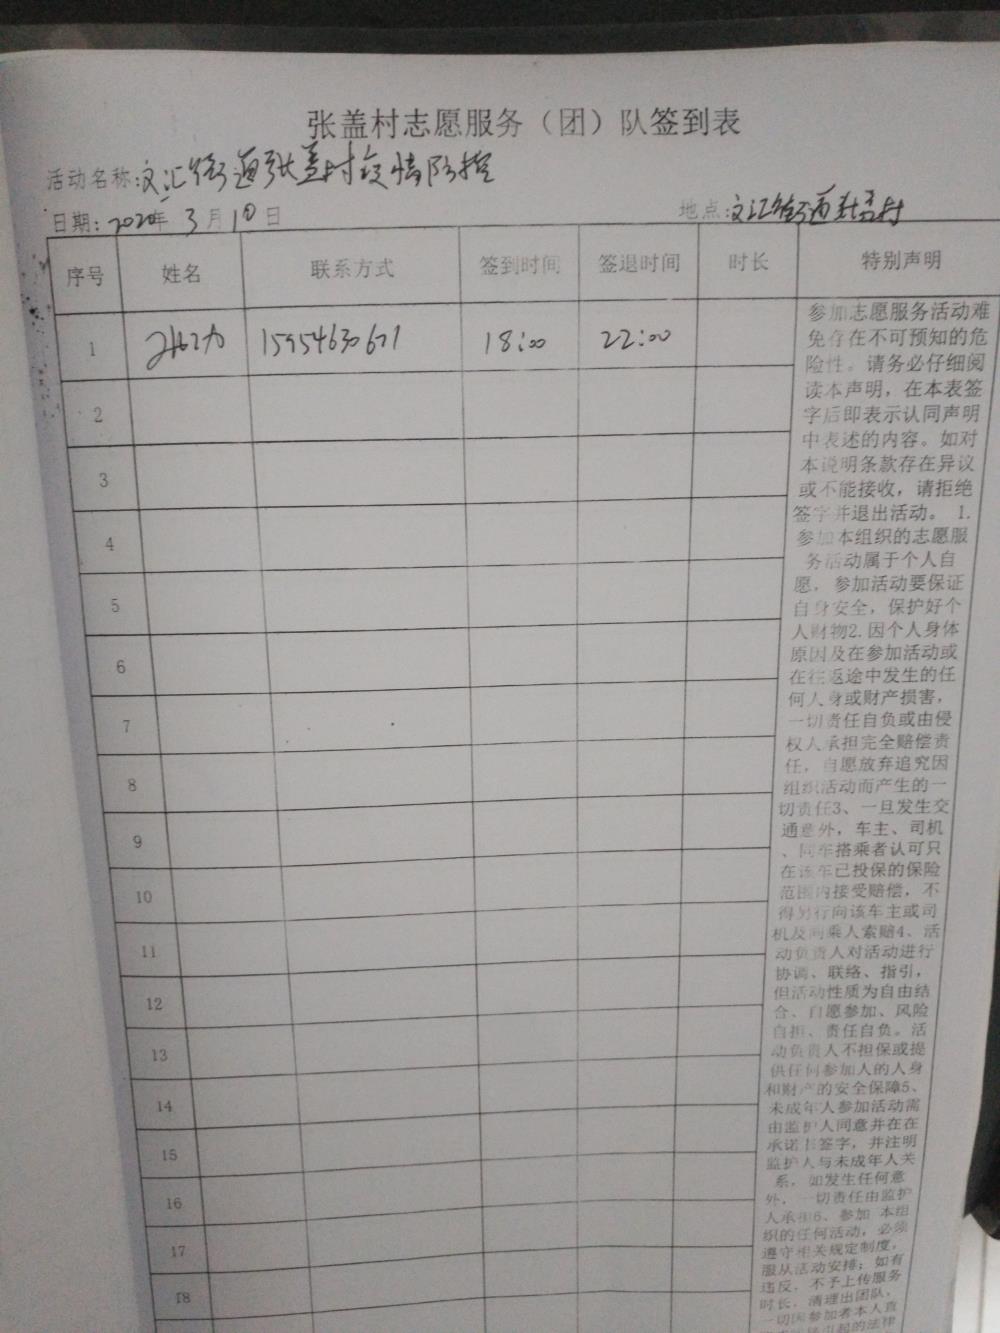 张盖村志愿服务（团）队签到表
活动名称:文汇街道张盖村疫情防控
日期:2020年3月10日 地点:文汇街道张盖村
序号 姓名 联系方式 签到时间 签退时间 时长 特别声明
1 15954630671 18:00 22:00
2
3
4
5
6
7
8
9
10
11
12
13
14
15
16
17
18
参加志愿服务活动难
免存在不可预知的危
险性。请务必仔细阅
读本声明，在本表签
字后即表示认同声明
中表述的内容。如对
本说明条款存在异议
或不能接收，请拒绝
签字并退出活动。 1.
参加本组织的志愿服
务活动属于个人自
愿，参加活动要保证
自身安全，保护好个
人财物2.因个人身体
原因及在参加活动或
在往返途中发生的任
何人身或财产损害，
一切责任自负或由侵
权人承担完全赔偿责
任，自愿放弃追究因
组织活动而产生的一
切责任3、一旦发生交
通意外，车主、司机
、同车搭乘者认可只
在该车已投保的保险
范围内接受赔偿，不
得另行向该车主或司
机及同乘人索赔4、活
动负责人对活动进行
协调、联络、指引，
但活动性质为自由结
合、自愿参加、风险
自担、责任自负。活
动负责人不担保或提
供任何参加人的人身
和财产的安全保障5、
未成年人参加活动需
由监护人同意并在在
承诺书签字，并注明
监护人与未成年人关
系，如发生任何意
外，一切责任由监护
人承担6、参加 本组
织的任何活动，必须
遵守相关规定制度，
服从活动安排；如有
违反，不予上传服务
时长，清理出团队，
一切因参加者本人直
引起的法律